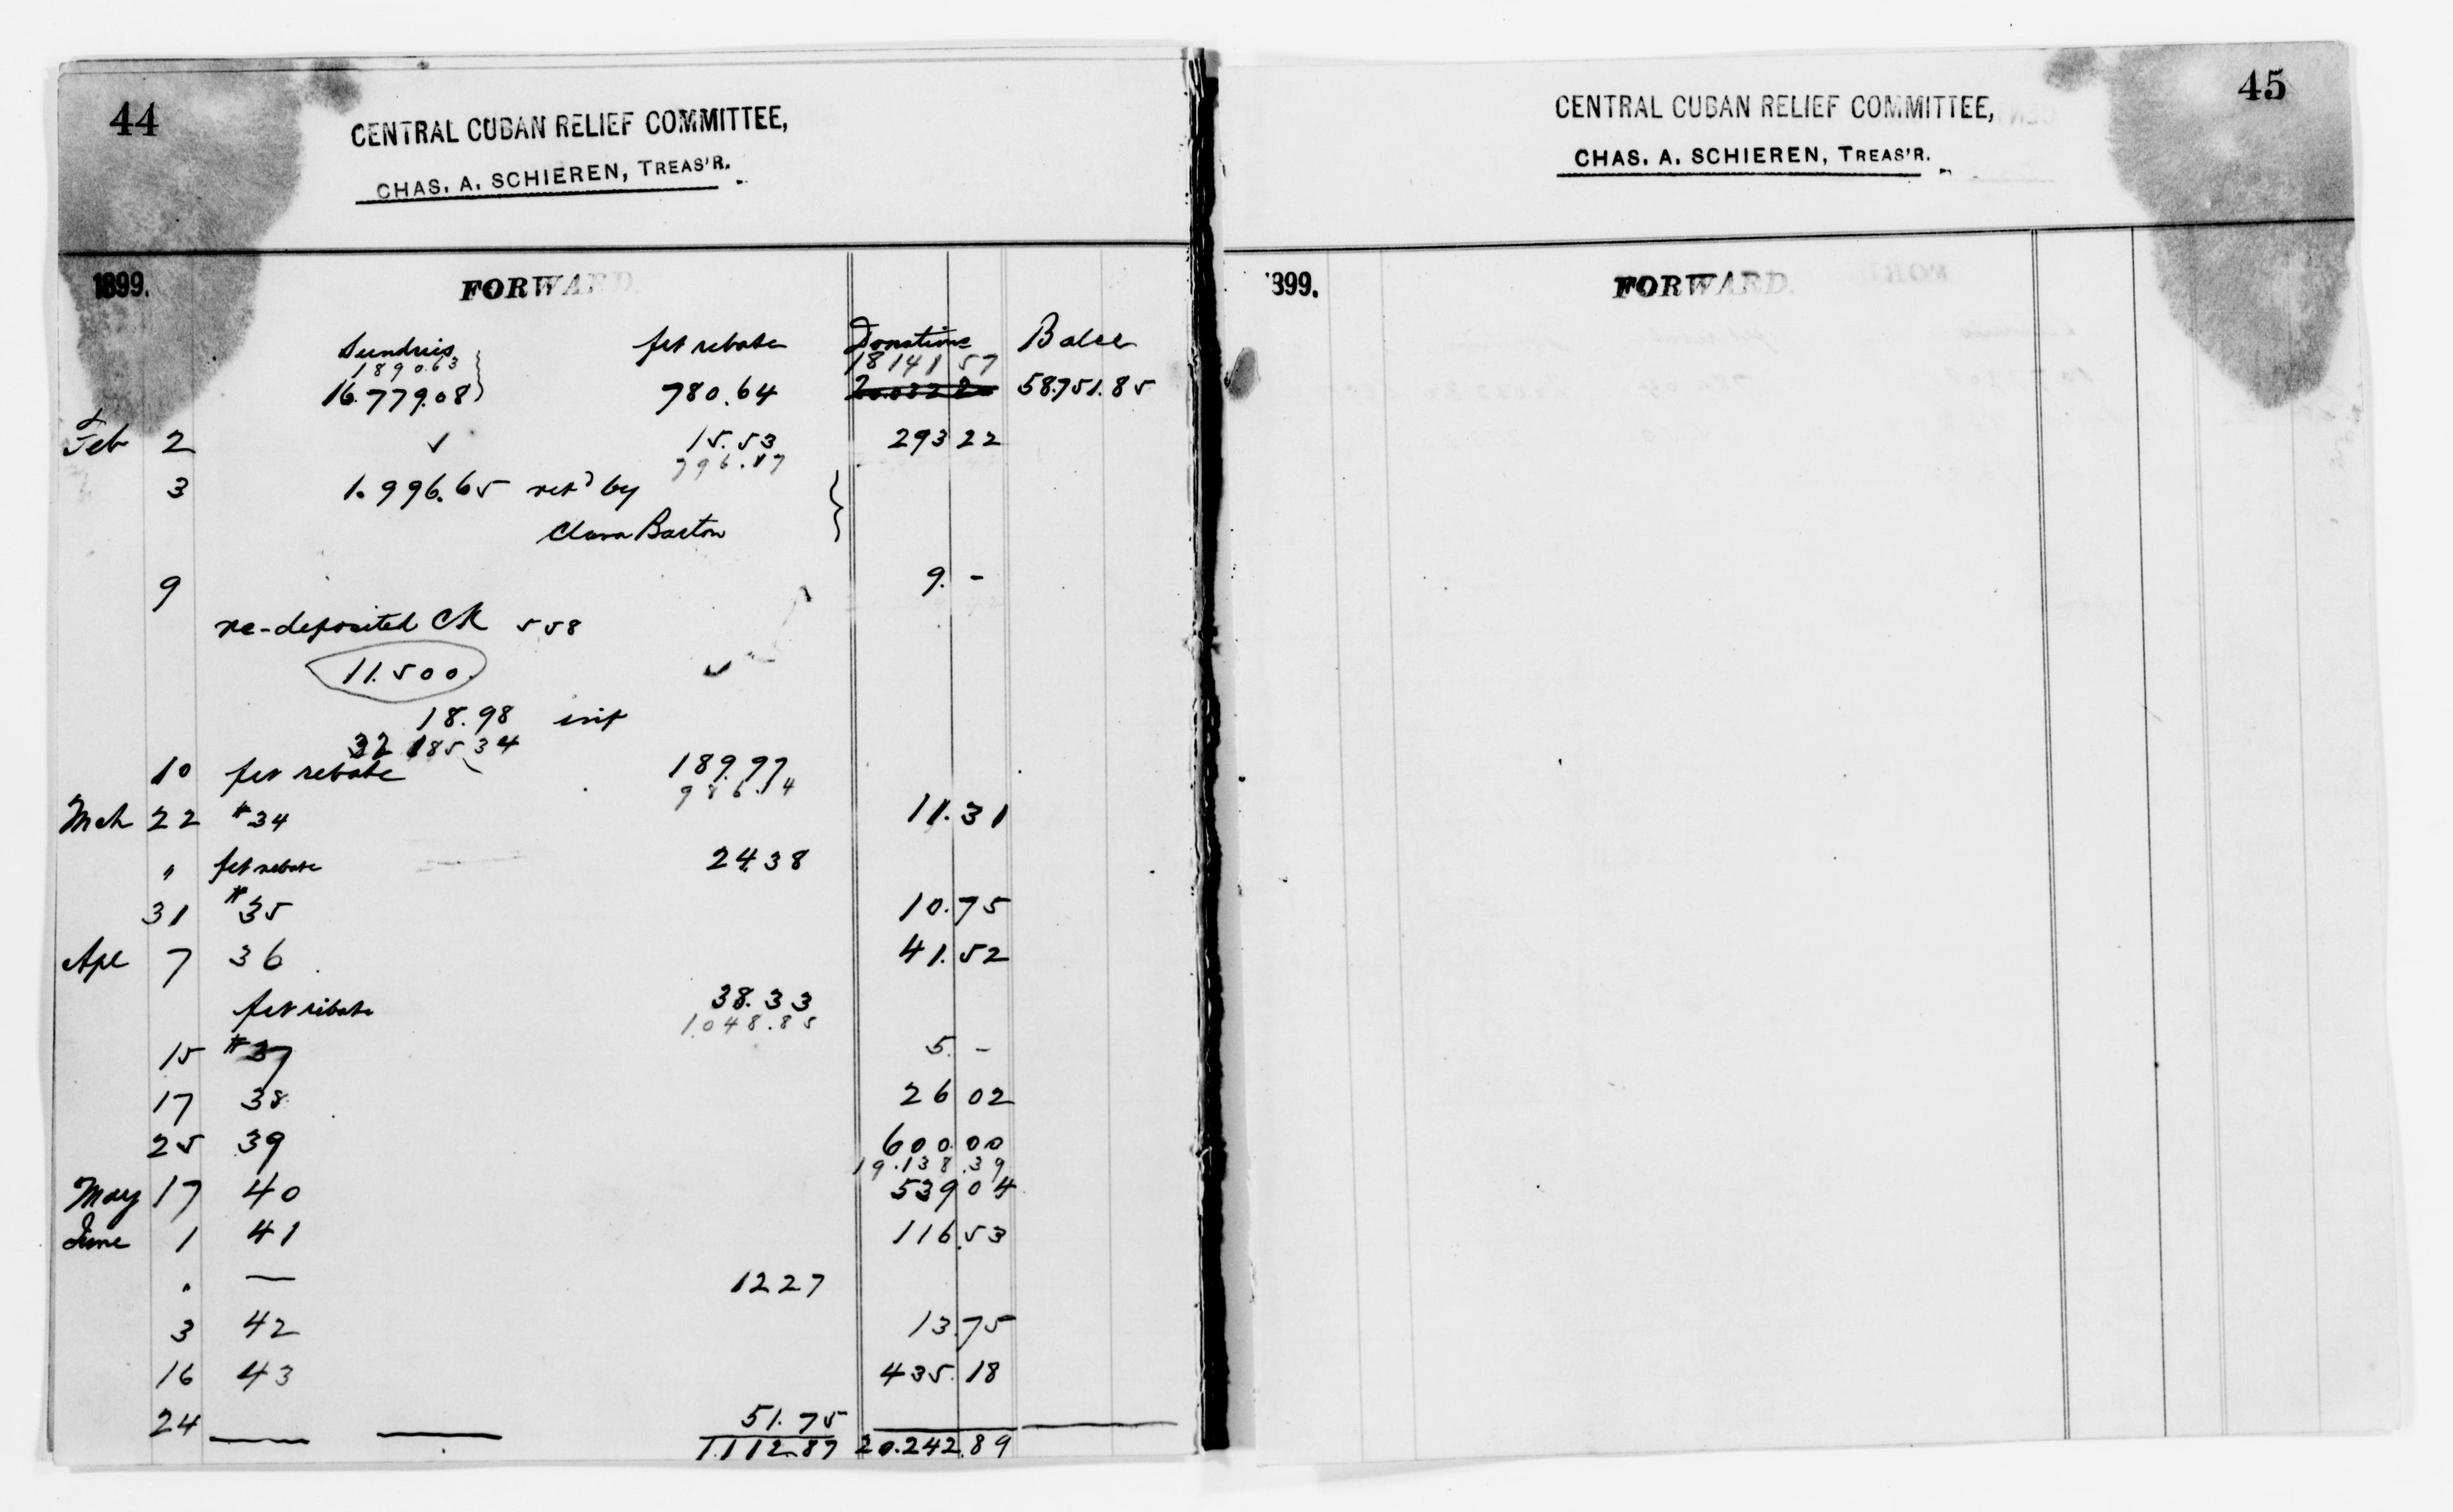 44
CENTRAL CUBAN RELIEF COMMITTEE,
CHAS. A. SCHIEREN, TREAS'R.
1899. FORWARD.
Sundries frt rebate Donations Balce
1890.63 18141 57
16.779.08 780.64 58.751.85
Feb 2 ✓ 15.53 293 22
796.17
3 1.996.65 ret'd by
Clara Barton
9 9. -
re-deposited CK 558
11.500. ✓
18.98 int
32 185 34
10 frt rebate 189.97
986.14
Mch 22 #34 11.31
" frt rebate 24.38
31 #35 10.75
Apl 7 36 41.52
frt rebate 38.33
1.048.85
15 #37 5. -
17 38 26 02
25 39 600.00
19.138.39
May 17 40 539 04
June 1 41 116.53
" — 12 27
3 42 13.75
16 43 435.18
24 — — 51.75
1.112.87 20.242.89
45
CENTRAL CUBAN RELIEF COMMITTEE,
CHAS. A. SCHIEREN, TREAS'R.
899. FORWARD.